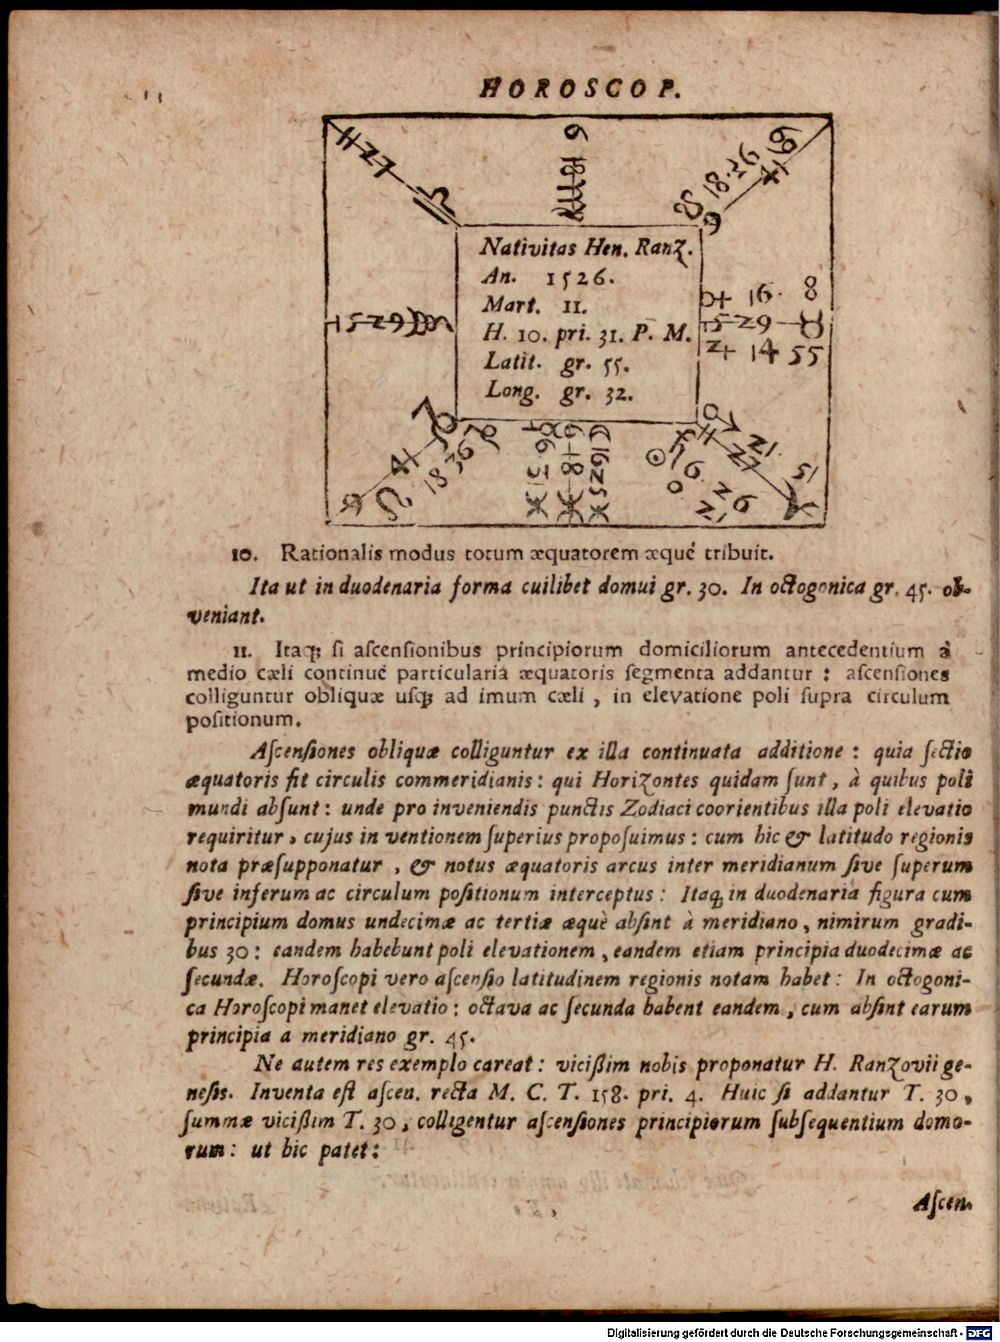 HOROSCOP.
Nativitas Hen. Ranz.
An. 1526.
Mart. 11.
H. 10. pri. 31. P. M.
Latit. gr. 55.
Long. gr. 32.
18. 26
16. 8
29
14 55
18 36
10. Rationalis modus totum æquatorem æque tribuit.
Ita ut in duodenaria forma cuilibet domui gr. 30. In octogonica gr. 45. ob-
veniant.
11. Itaq; si ascensionibus principiorum domiciliorum antecedentium à
medio cæli continuè particularia æquatoris segmenta addantur : ascensiones
colliguntur obliquæ usq; ad imum cæli, in elevatione poli supra circulum
positionum.
Ascensiones obliquæ colliguntur ex illa continuata additione : quia sectio
æquatoris fit circulis commeridianis : qui Horizontes quidam sunt, à quibus poli
mundi absunt : unde pro inveniendis punctis Zodiaci coorientibus illa poli elevatio
requiritur, cujus in ventionem superius proposuimus : cum hic & latitudo regionis
nota præsupponatur, & notus æquatoris arcus inter meridianum sive superum
sive inferum ac circulum positionum interceptus : Itaq; in duodenaria figura cum
principium domus undecimæ ac tertiæ æquè absint à meridiano, nimirum gradi-
bus 30 : eandem habebunt poli elevationem, eandem etiam principia duodecimæ ac
secundæ. Horoscopi vero ascensio latitudinem regionis notam habet : In octogoni-
ca Horoscopi manet elevatio : octava ac secunda habent eandem, cum absint earum
principia a meridiano gr. 45.
Ne autem res exemplo careat : vicissim nobis proponatur H. Ranzovii ge-
nesis. Inventa est ascen. recta M. C. T. 158. pri. 4. Huic si addantur T. 30,
summæ vicissim T. 30, colligentur ascensiones principiorum subsequentium domo-
rum : ut hic patet :
Ascen.
Digitalisierung gefördert durch die Deutsche Forschungsgemeinschaft - DFG